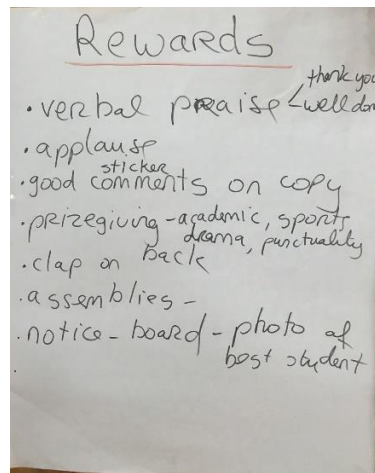 Rewards
thank you
• verbal praise < well don
• applause
sticker
• good comments on copy
• prizegiving - academic, sports
drama, punctuality
• clap on back
• assemblies -
• notice - board - photo of
best student
•